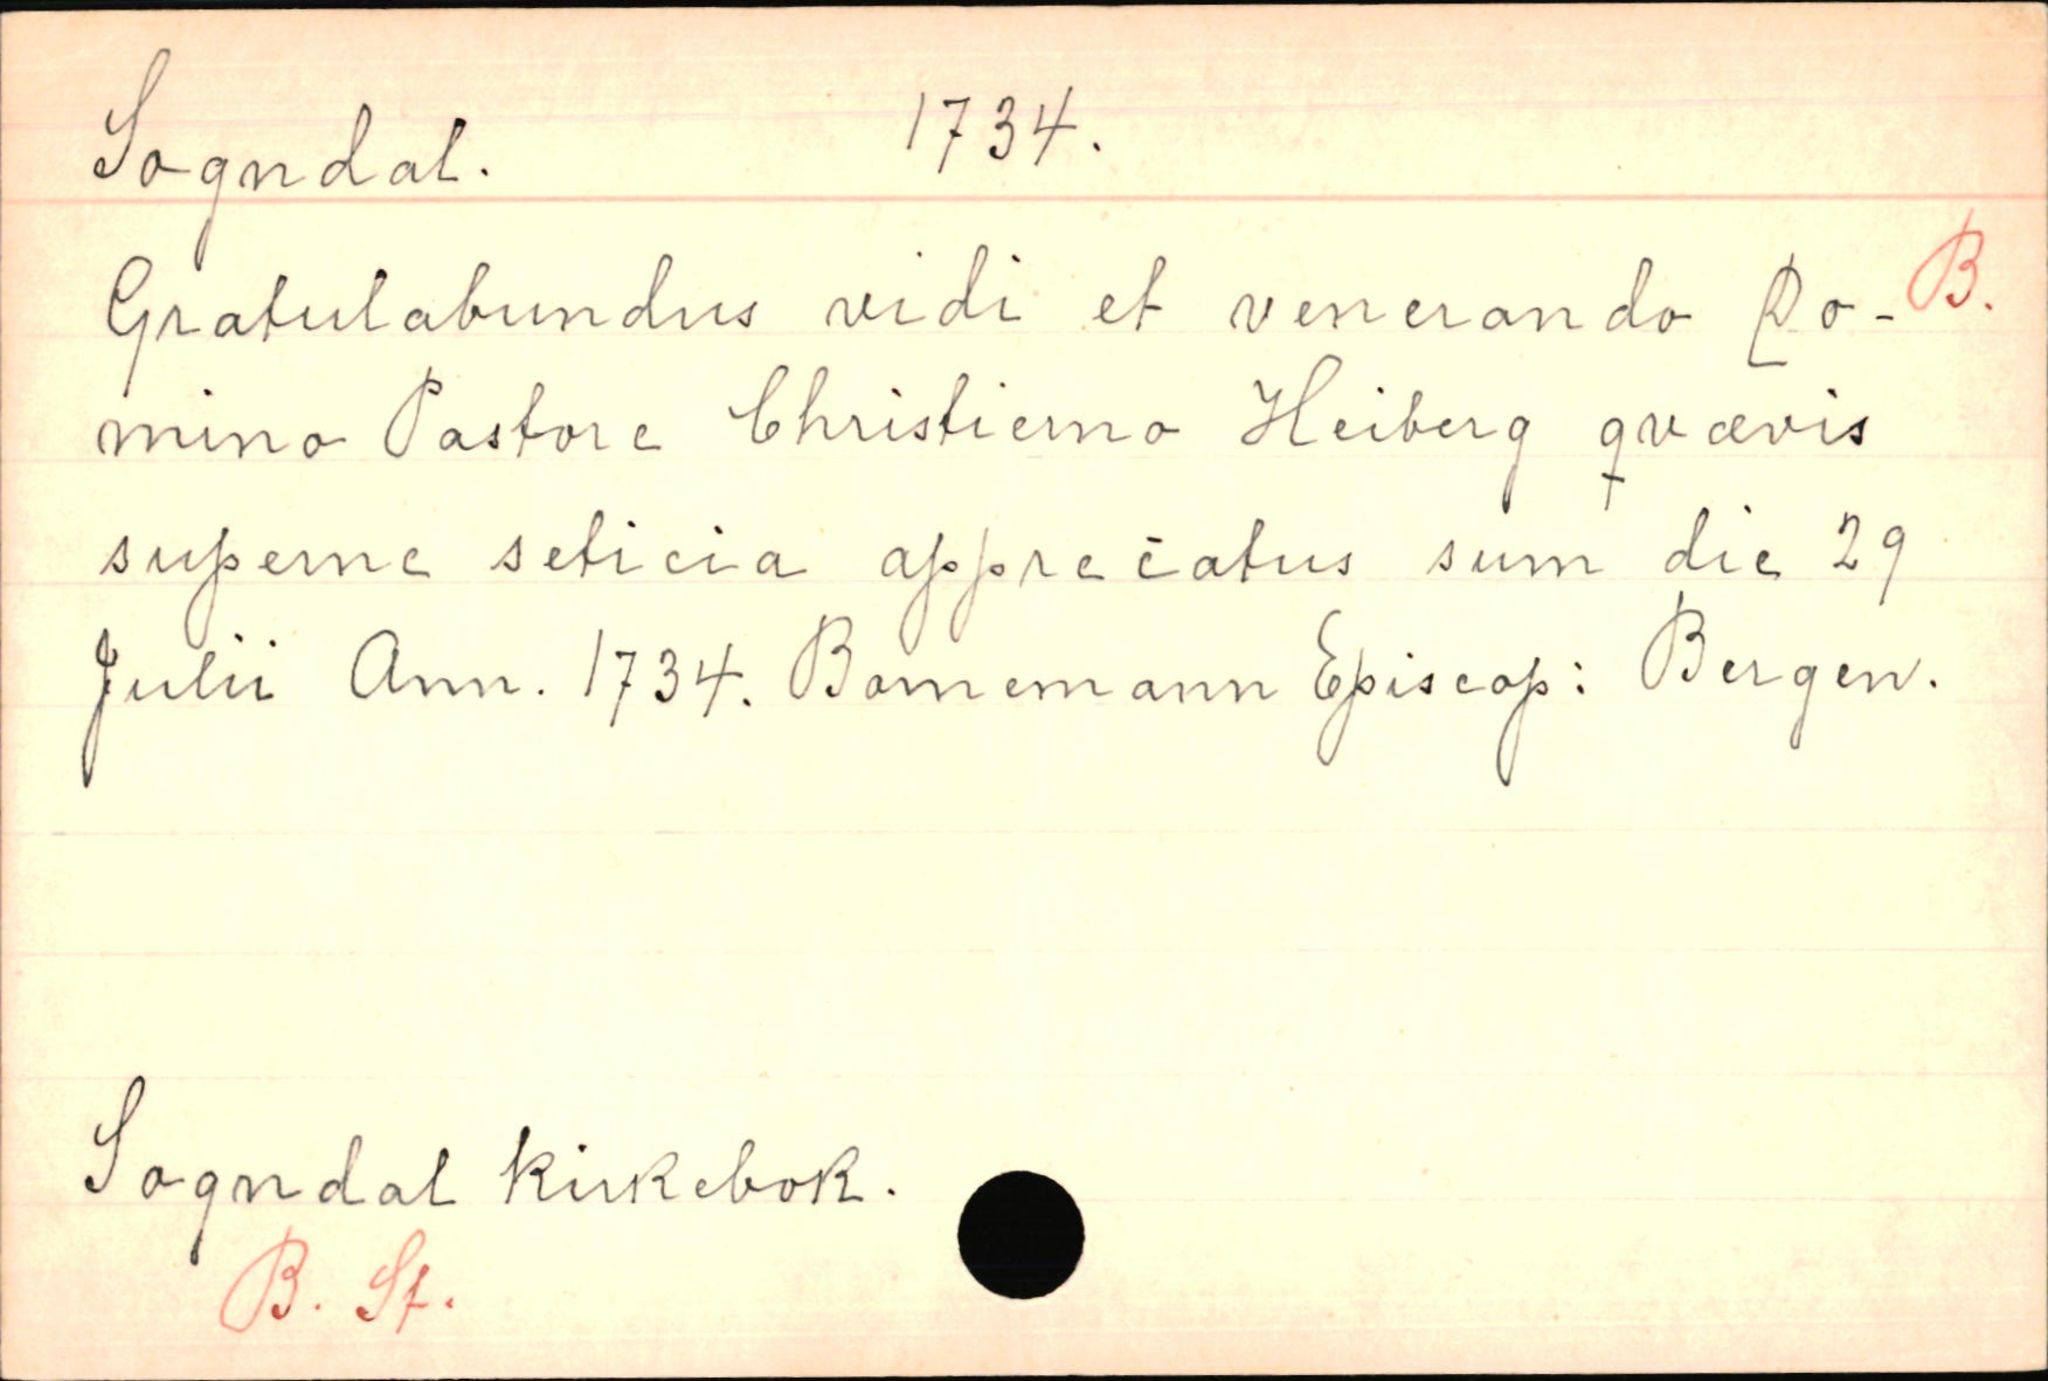 Sogndal. 1734.
Gratulabundus vidi et venerando Do- B.
mino Pastore Christierno Heiberg qvævis
superne seticia apprecatus sum die 29
Julii Ann. 1734. Bornemann Episcop: Bergen.
Sogndal kirkebok.
B. St.